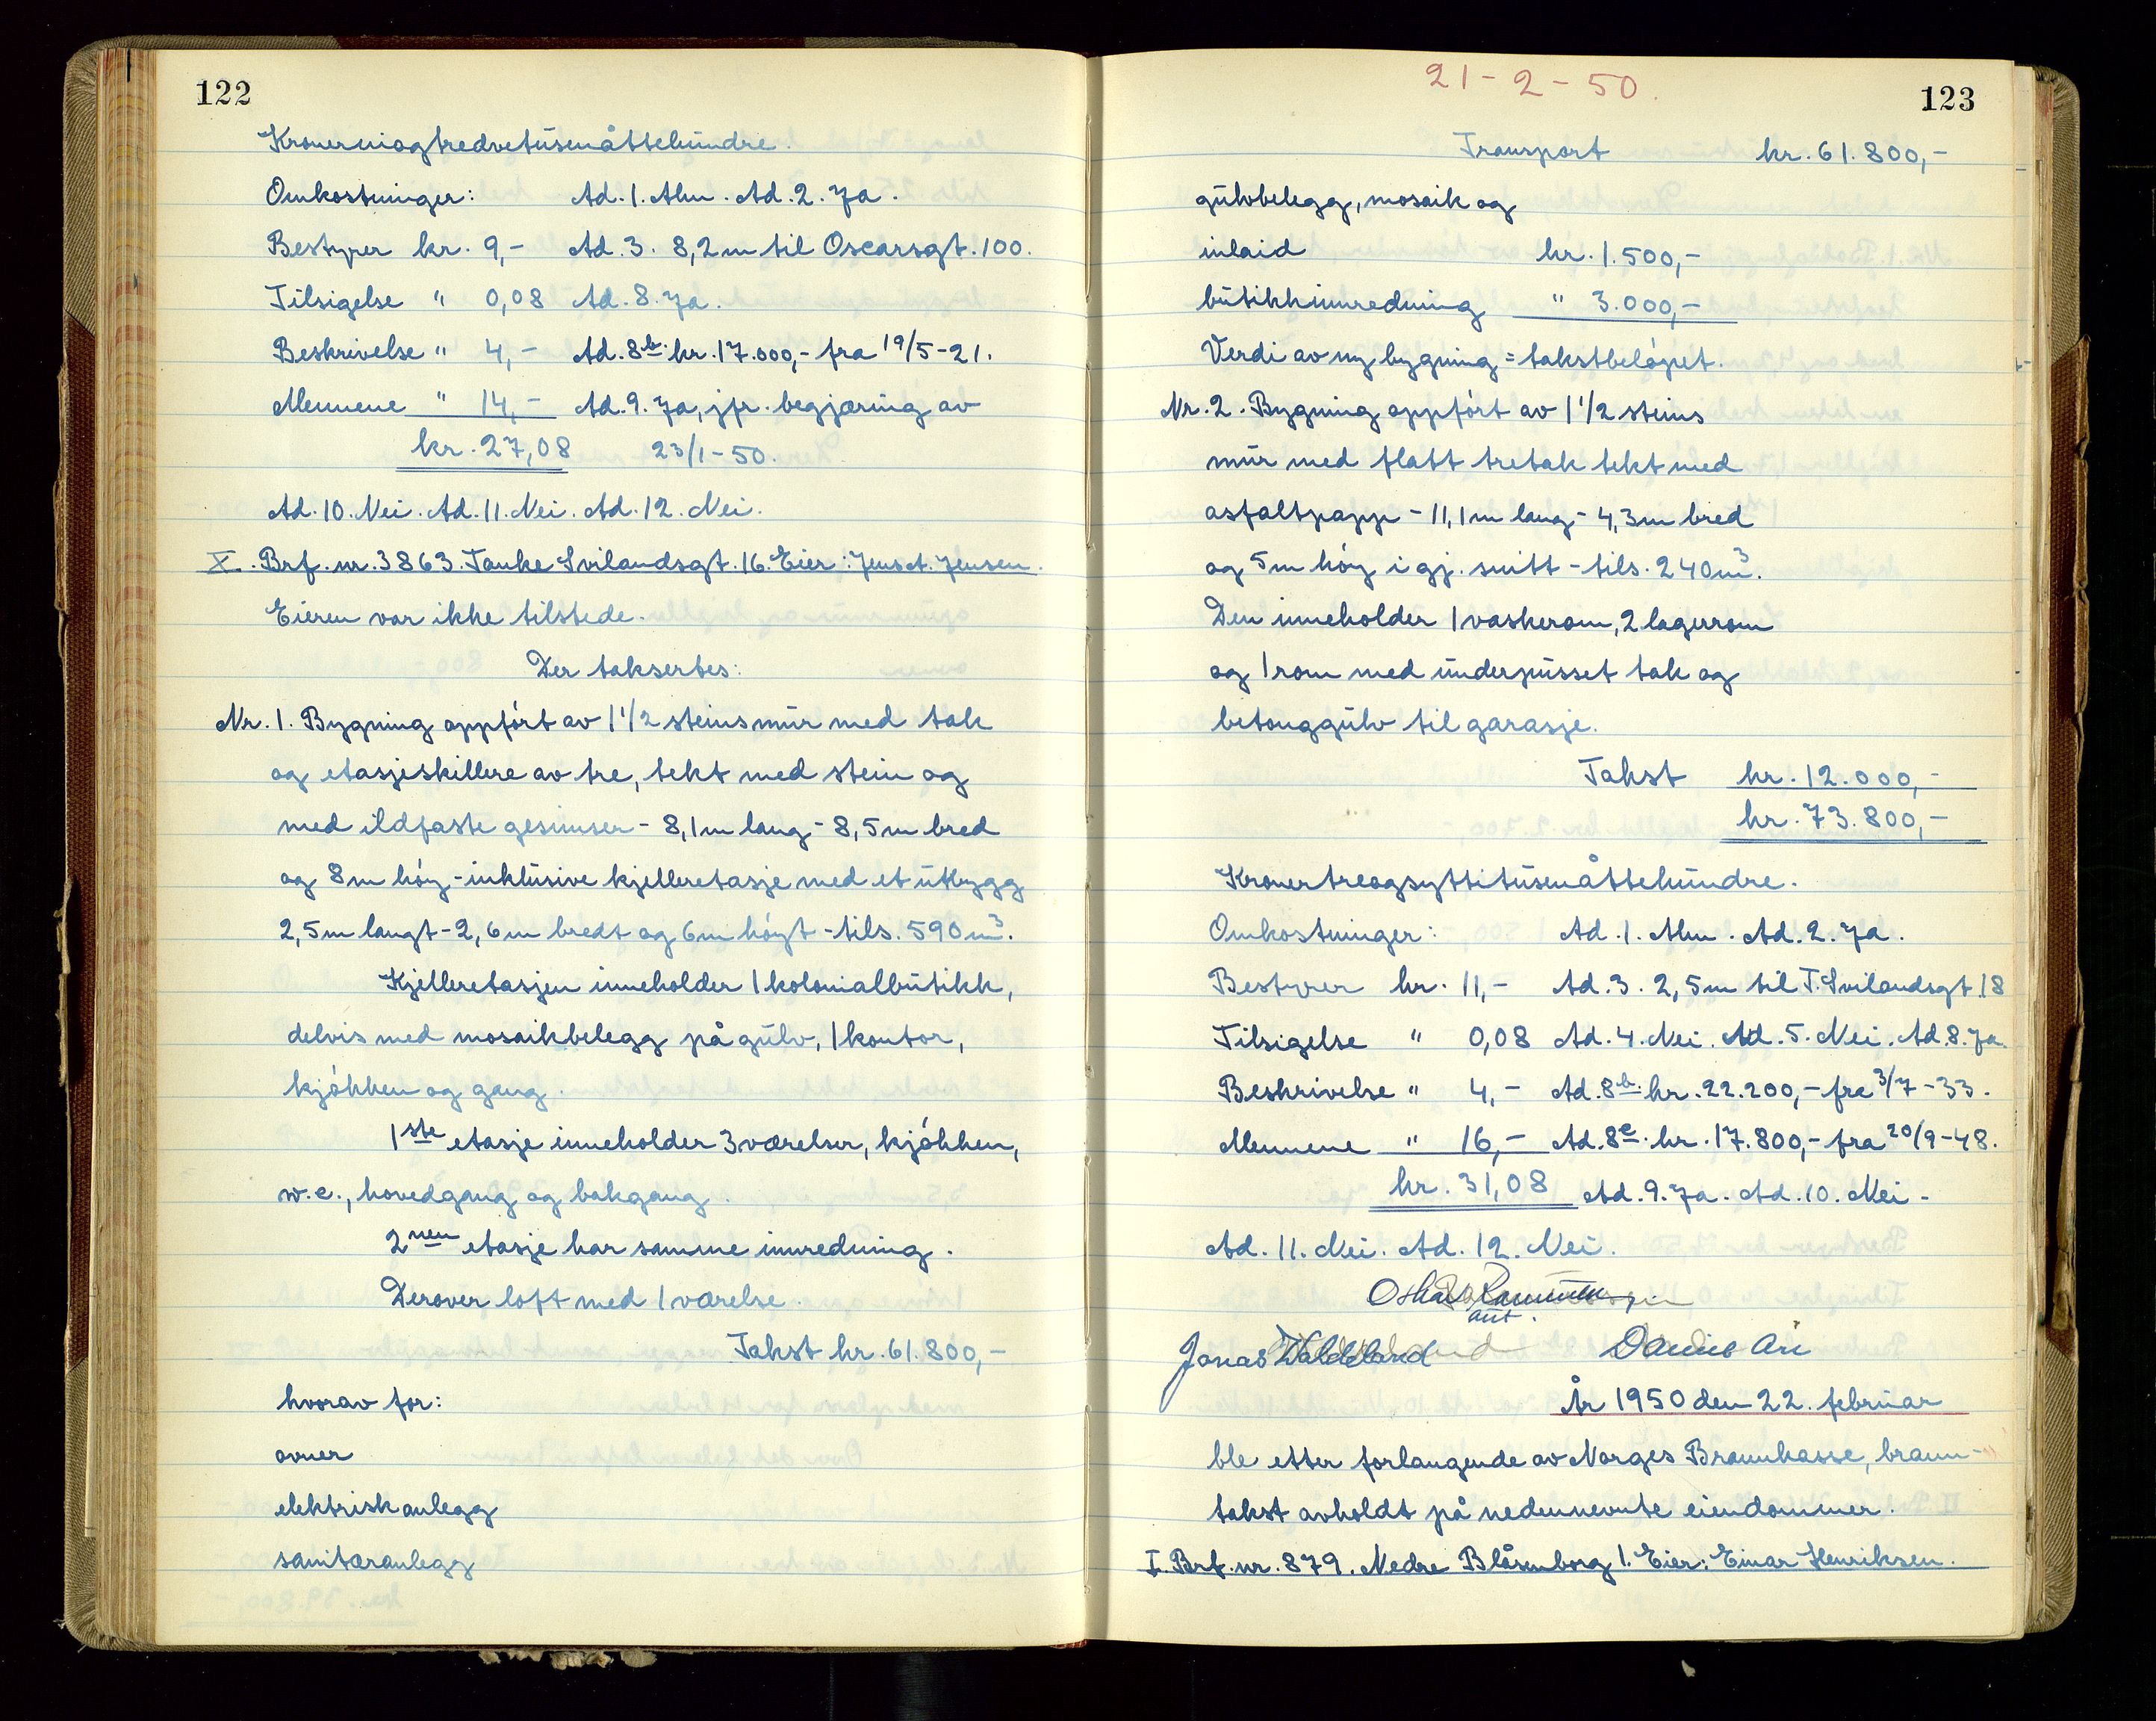 122
Kronerniogtredvetusenåttehundre.
Omkostninger: Ad. 1. Alm. Ad. 2. Ja.
Bestyrer kr. 9,- Ad. 3. 8,2 m til Oscarsgt. 100.
Tilsigelse " 0,08 Ad. 8. Ja.
Beskrivelse " 4,- Ad. 8b. kr. 17.000,- fra 19/5-21.
Mennene " 14,- Ad. 9. Ja, jfr. begjæring av
kr. 27,08 23/1-50.
Ad. 10. Nei. Ad. 11. Nei. Ad. 12. Nei.
X. Brf. nr. 3863. Tanke Svilandsgt. 16. Eier: Jens A. Jensen.
Eieren var ikke tilstede.
Der taksertes:
Nr. 1. Bygning oppført av 1 1/2 steins mur med tak
og etasjeskillere av tre, tekt med stein og
med ildfaste gesimser - 8,1 m lang - 8,5 m bred
og 8 m høy - inklusive kjelleretasje med et utbygg
2,5 m langt - 2,6 m bredt og 6 m høyt - tils. 590 m³.
Kjelleretasjen inneholder 1 kolonialbutikk,
delvis med mosaikbelegg på gulv, 1 kontor,
kjøkken og gang.
1ste etasje inneholder 3 værelser, kjøkken,
w.c., hovedgang og bakgang.
2nen etasje har samme innredning.
Derover loft med 1 værelse.
Takst kr. 61.800,-
hvorav for:
ovner
elektrisk anlegg
sanitæranlegg
21-2-50.
123
Transport kr. 61.800,-
gulvbelegg, mosaik og
inlaid kr. 1.500,-
butikkinnredning " 3.000,-
Verdi av ny bygning = takstbeløpet.
Nr. 2. Bygning oppført av 1 1/2 steins
mur med flatt tretak tekt med
asfaltpapp - 11,1 m lang - 4,3 m bred
og 5 m høy i gj. snitt - tils. 240 m³.
Den inneholder 1 vaskerom, 2 lagerrom
og 1 rom med underpusset tak og
betonggulv til garasje.
Takst kr. 12.000,-
kr. 73.800,-
Kronertreogsyttitusenåttehundre.
Omkostninger: Ad. 1. Alm. Ad. 2. Ja.
Bestyrer kr. 11,- Ad. 3. 2,5 m til T. Svilandsgt. 18
Tilsigelse " 0,08 Ad. 4. Nei. Ad. 5. Nei. Ad. 8. Ja.
Beskrivelse " 4,- Ad. 8b. kr. 22.200,- fra 3/7-33.
Mennene " 16,- Ad. 8c. kr. 17.800,- fra 20/9-48.
kr. 31,08 Ad. 9. Ja. Ad. 10. Nei.
Ad. 11. Nei. Ad. 12. Nei.
Oskar
aut.
Jonas Waldeland
År 1950 den 22. februar
ble etter forlangende av Norges Brannkasse, brann-
takst avholdt på nedennevnte eiendommer.
I. Brf. nr. 879. Nedre Blåsenborg 1. Eier: Einar Henriksen.